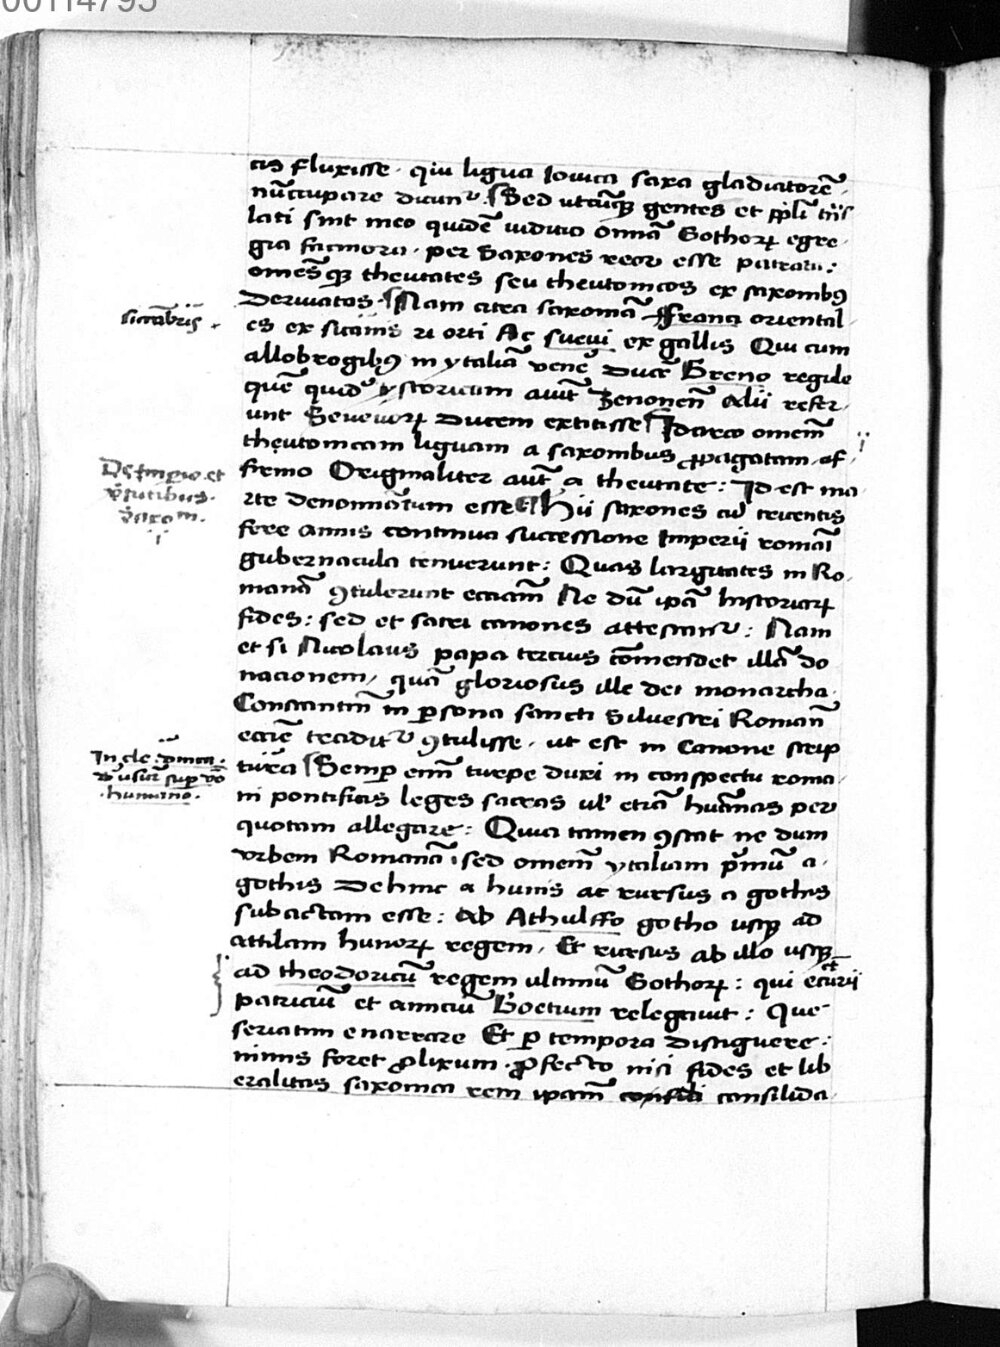 00114795
cis fluxisse · qui ligua iouica saxa gladiatorē
nūccupare dicunt᷑ · Sed utcūqꝫ gentes et ppl̄i
lati sint meo quidē iudicio omnia Gothoꝝ egre
gia facinora · per Saxones reor esse patrata :
omēsqꝫ theutates seu theutonicos ex saxonibꝰ
Deriuatos · Nam circa saxoniā Franci oriental
es ex sicāīis orti Ac sueui ex gallis Qui cum
allobrogibꝰ in ytaliā Duce Breno regule
quē quidē ystoricum aiūt Zenonem Alii refer
unt Seuevoꝝ Ducem extitisse Idcirco omem̄
theutonicam liguam a saxonibus ꝓpagatam af
firmo Originaliter aut̄ a theutate : Id est ma
rte denomīatum esse Hii saxones tricentis
fere annis continua successione Imperii romāi
gubernacula tenuerunt : Quas largitates in Ro
manā ꝯtulerunt ecciam̄ Ne dū ipā historiaꝝ
fides : sed et sacri canones attestant᷑ : Nam
et si Nicolaus papa tercius cōmendet illā do
nacionem / quā gloriosus ille dei monarcha
Constantin̄ in ꝑsona sancti Siluestri Roman̄
eccīe tradit᷑ ꝯtulisse · ut est in Canone scrip
tura Semꝑ em̄ turpe duxi in conspectu roma
ni pontificis leges sacras ul' etiā hūanas per
quotam allegare : Quia tamen ꝯstat ne dum
vrbem Romanā sed omem̄ ytaliam pͥmū a
gothis Dehinc a hunis ac rursus a gothis
subactam esse : Ab Athulffo gotho usqꝫ ad
attilam hunoꝝ regem / Et rursus ab illo usqꝫ
ad theodoricū regem ultimū Gothoꝝ : qui et
patriciū et anniciū Boetium relegauit : Que
seriatim enarrare Et ꝑ tempora distiguere :
nimis foret ꝓlixum ꝓfecto nisi fides et lib
eralitas saxonica rem ipam̄ consilida
sicābriis ·
De Impio et
v̄tutibus
saxonū
In cle pͥma
humano